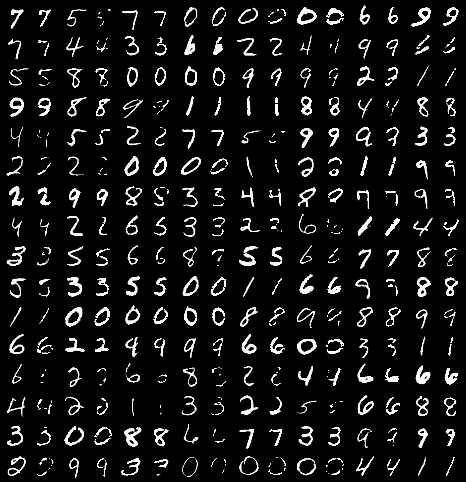 7 7 5 5 7 7 0 0 0 0 0 0 6 6 9 9
7 7 4 4 3 3 6 6 2 2 4 4 9 9 6 6
5 5 8 8 0 0 0 0 9 9 9 9 2 2 1 1
9 9 8 8 9 9 1 1 1 1 8 8 4 4 8 8
4 4 5 5 2 2 7 7 5 5 9 9 9 9 3 3
2 2 2 2 0 0 0 0 1 1 2 2 1 1 9 9
2 2 9 9 8 8 3 3 4 4 8 8 7 7 9 9
4 4 2 2 6 6 3 3 2 2 6 6 1 1 4 4
3 3 5 5 6 6 8 8 5 5 6 6 7 7 8 8
5 5 3 3 5 5 0 0 1 1 6 6 9 9 8 8
1 1 0 0 0 0 0 0 8 8 9 9 8 8 9 9
6 6 2 2 9 9 9 9 6 6 0 0 3 3 1 1
6 6 2 2 6 6 8 8 2 2 4 4 6 6 6 6
4 4 2 2 1 1 3 3 2 2 5 5 6 6 8 8
3 3 0 0 8 8 6 6 7 7 3 3 9 9 9 9
2 2 9 9 3 3 0 0 0 0 0 0 4 4 1 1